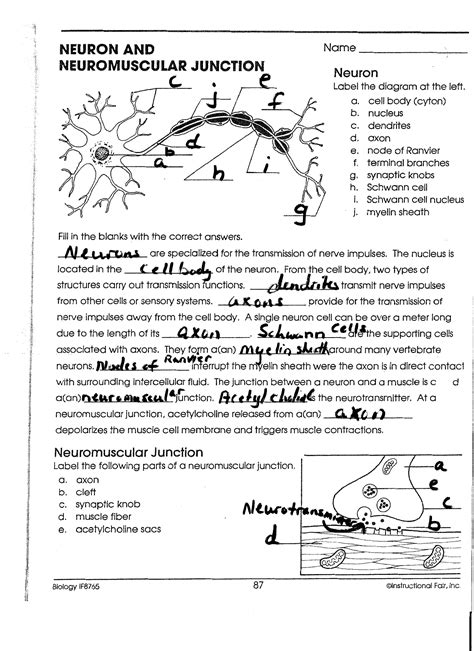 NEURON AND
NEUROMUSCULAR JUNCTION
Name
Neuron
Label the diagram at the left.
a. cell body (cyton)
b. nucleus
c. dendrites
d. axon
e. node of Ranvier
f. terminal branches
g. synaptic knobs
h. Schwann cell
i. Schwann cell nucleus
j. myelin sheath
c
j
e
f
d
a
b
h
i
g
Fill in the blanks with the correct answers.
Neurons are specialized for the transmission of nerve impulses. The nucleus is
located in the cell body of the neuron. From the cell body, two types of
structures carry out transmission functions. dendrites transmit nerve impulses
from other cells or sensory systems. axons provide for the transmission of
nerve impulses away from the cell body. A single neuron cell can be over a meter long
due to the length of its axon. Schwann cells are the supporting cells
associated with axons. They form a(an) myelin sheath around many vertebrate
neurons. Nodes of Ranvier interrupt the myelin sheath were the axon is in direct contact
with surrounding intercellular fluid. The junction between a neuron and a muscle is c d
a(an) neuromuscular junction. Acetylcholine is the neurotransmitter. At a
neuromuscular junction, acetylcholine released from a(an) axon
depolarizes the muscle cell membrane and triggers muscle contractions.
Neuromuscular Junction
Label the following parts of a neuromuscular junction.
a. axon
b. cleft
c. synaptic knob
d. muscle fiber
e. acetylcholine sacs
a
e
c
Neurotransmitter
b
d
Biology IF8765
87
©Instructional Fair, Inc.